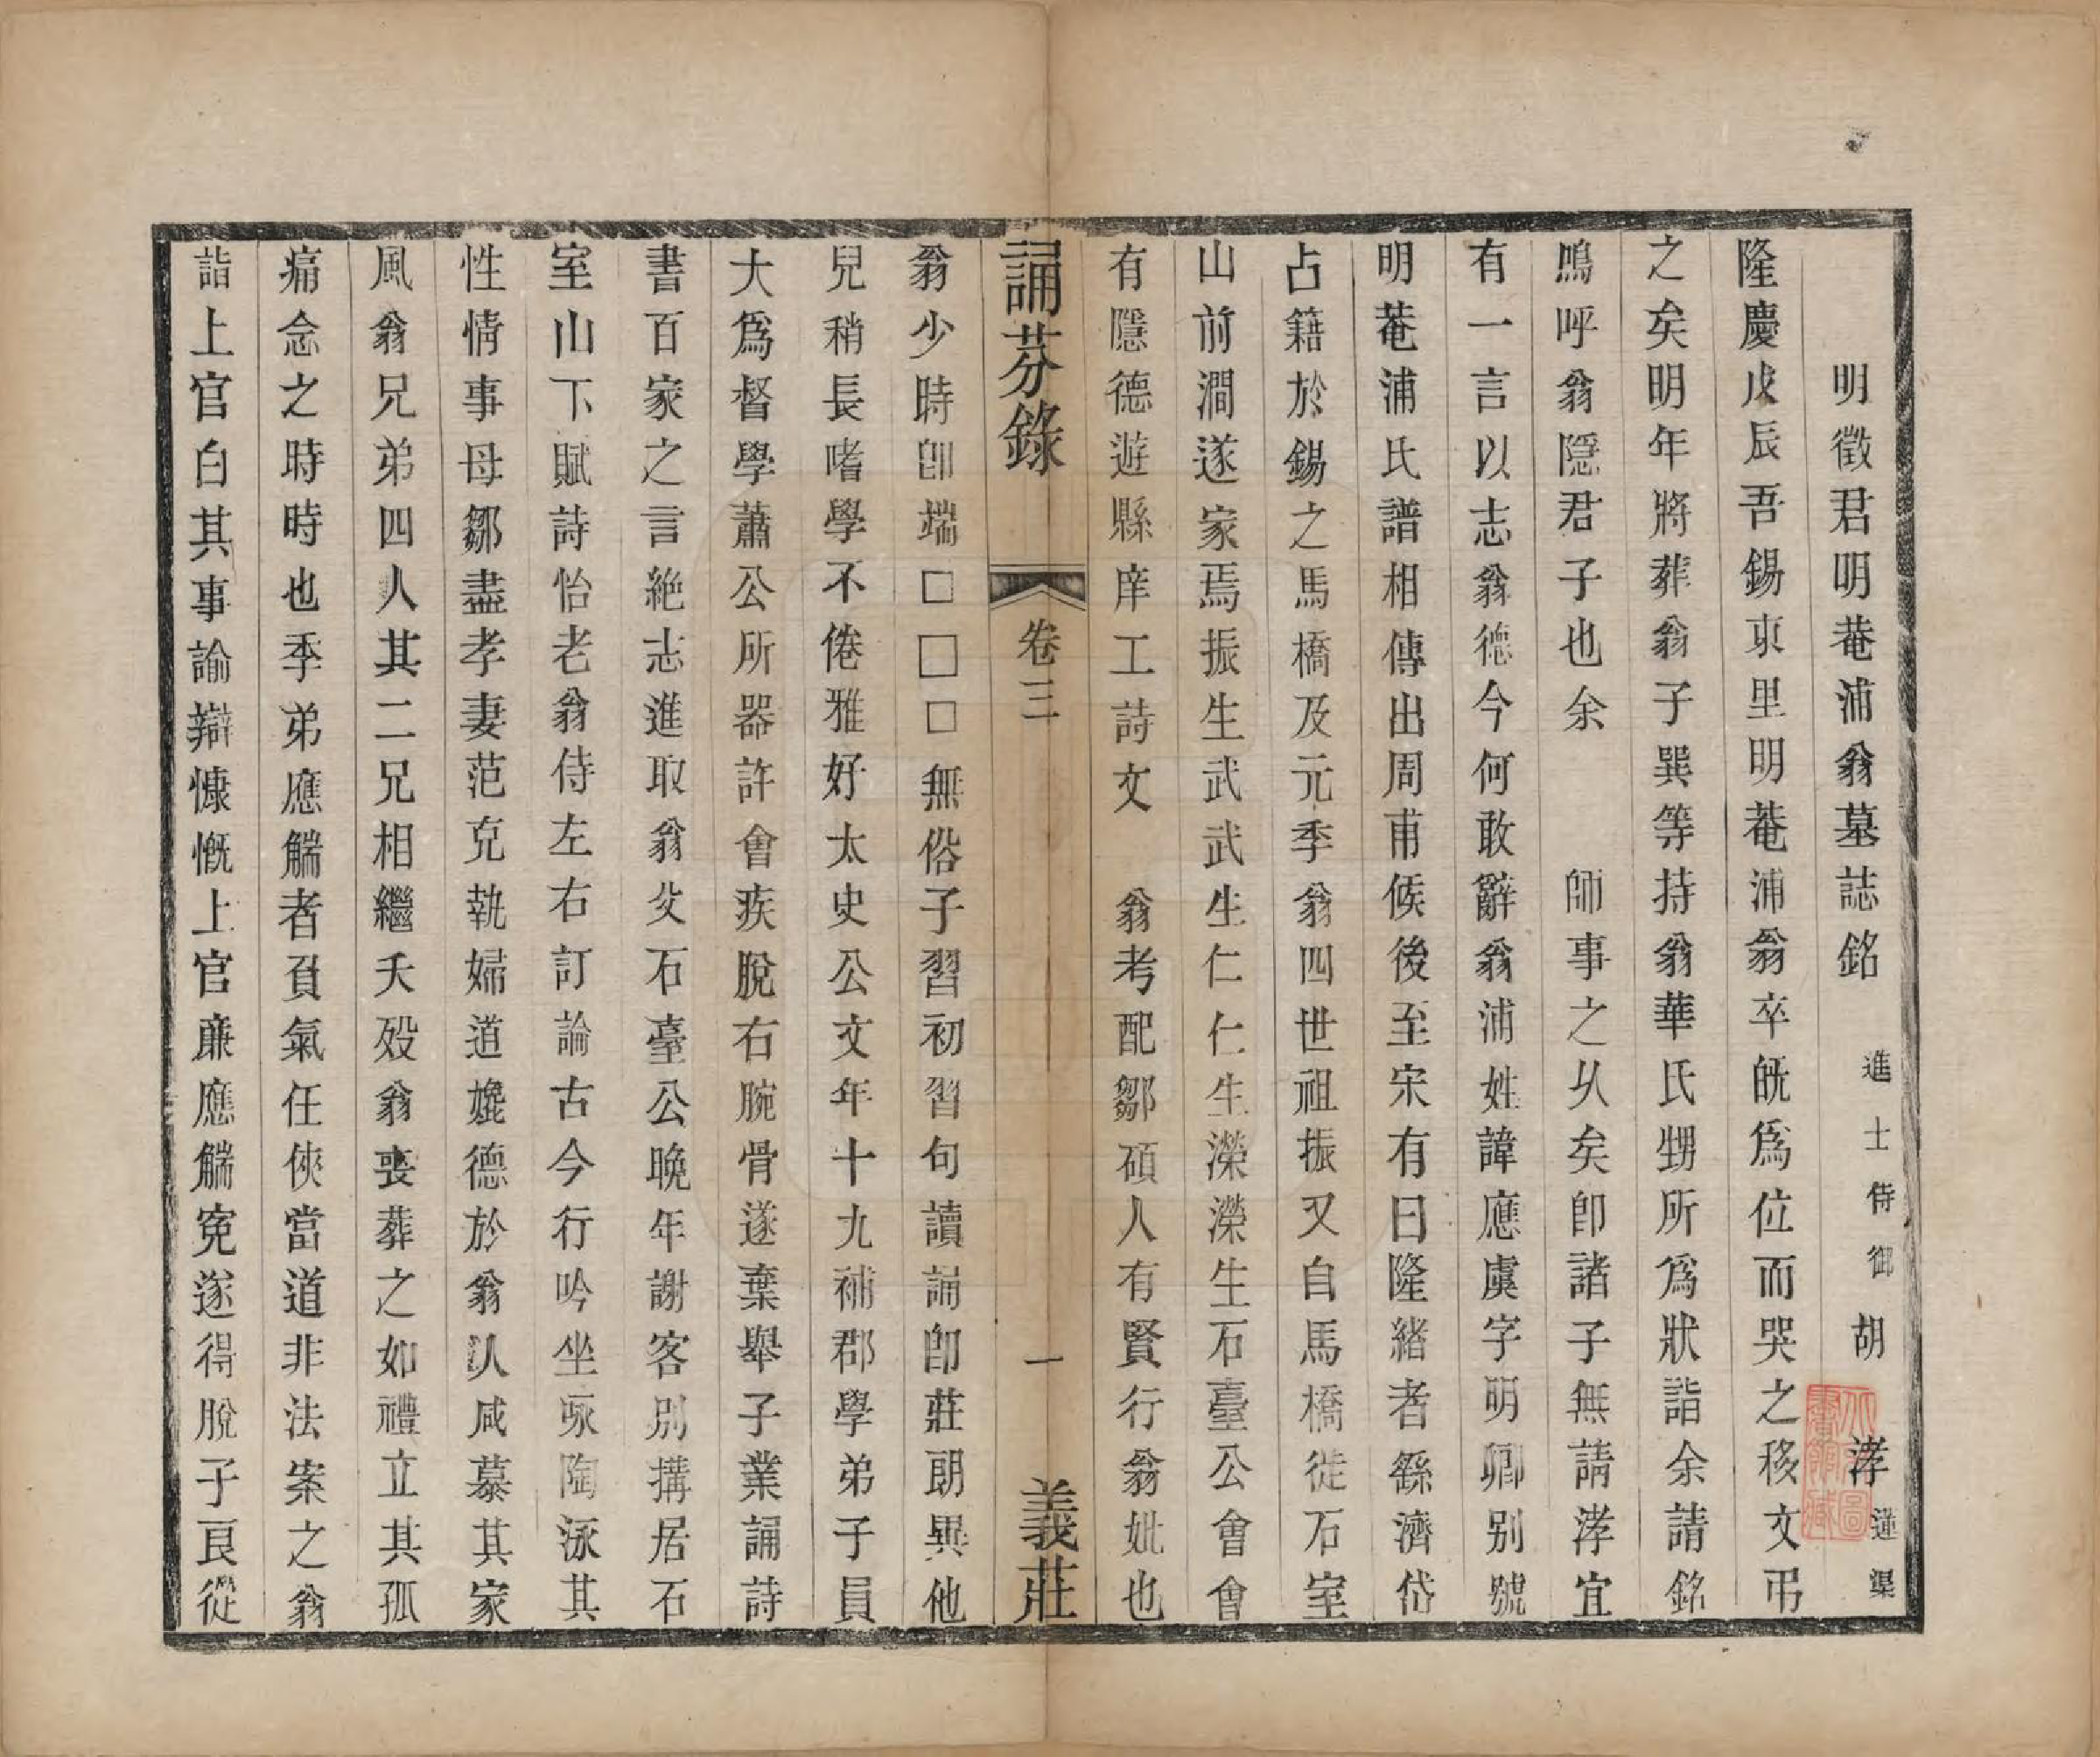 明徵君明菴浦翁墓誌銘　進士侍御胡　涍蓮渠
隆慶戊辰吾錫東里明菴浦翁卒旣爲位而哭之移文弔
之矣明年將葬翁子巽等持翁華氏甥所爲狀詣余請銘
鳴呼翁隱君子也余　師事之乆矣卽諸子無請涍宜
有一言以志翁德今何敢辭翁浦姓諱應虞字明卿别號
明菴浦氏譜相傳出周甫侯後至宋有曰隆緒者繇濟岱
占籍於錫之馬橋及元季翁四世祖振又自馬橋徙石室
山前澗遂家焉振生武武生仁仁生濚濚生石臺公會會
有隱德遊縣庠工詩文　翁考配鄒碩人有賢行翁妣也
誦芬錄　卷三　一　義莊
翁少時卽端□□□無俗子習初習句讀誦卽莊朗異他
兒稍長嗜學不倦雅好太史公文年十九補郡學弟子員
大爲督學蕭公所器許會疾脫右腕骨遂棄舉子業誦詩
書百家之言絶志進取翁父石臺公晚年謝客別搆居石
室山下賦詩怡老翁侍左右訂論古今行吟坐咏陶泳其
性情事母鄒盡孝妻范克執婦道媲德於翁以咸慕其家
風翁兄弟四人其二兄相繼夭殁翁喪葬之如禮立其孤
痛念之時時也季弟應觹者負氣任俠當道非法案之翁
詣上官白其事論辯慷慨上官廉應觹寃遂得脫子良從